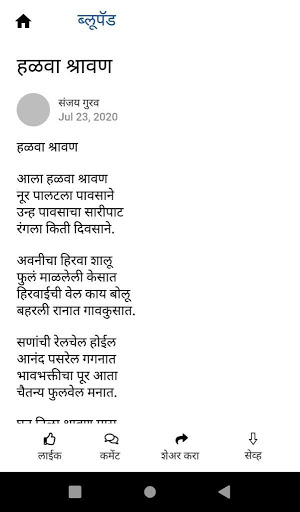 ब्लूपॅड
हळवा श्रावण
संजय गुरव
Jul 23, 2020
हळवा श्रावण
आला हळवा श्रावण
नूर पालटला पावसाने
उन्ह पावसाचा सारीपाट
रंगला किती दिवसाने.
अवनीचा हिरवा शालू
फुलं माळलेली केसात
हिरवाईची वेल काय बोलू
बहरली रानात गावकुसात.
सणांची रेलचेल होईल
आनंद पसरेल गगनात
भावभक्तीचा पूर आता
चैतन्य फुलवेल मनात.
लाईक कमेंट शेअर करा सेव्ह